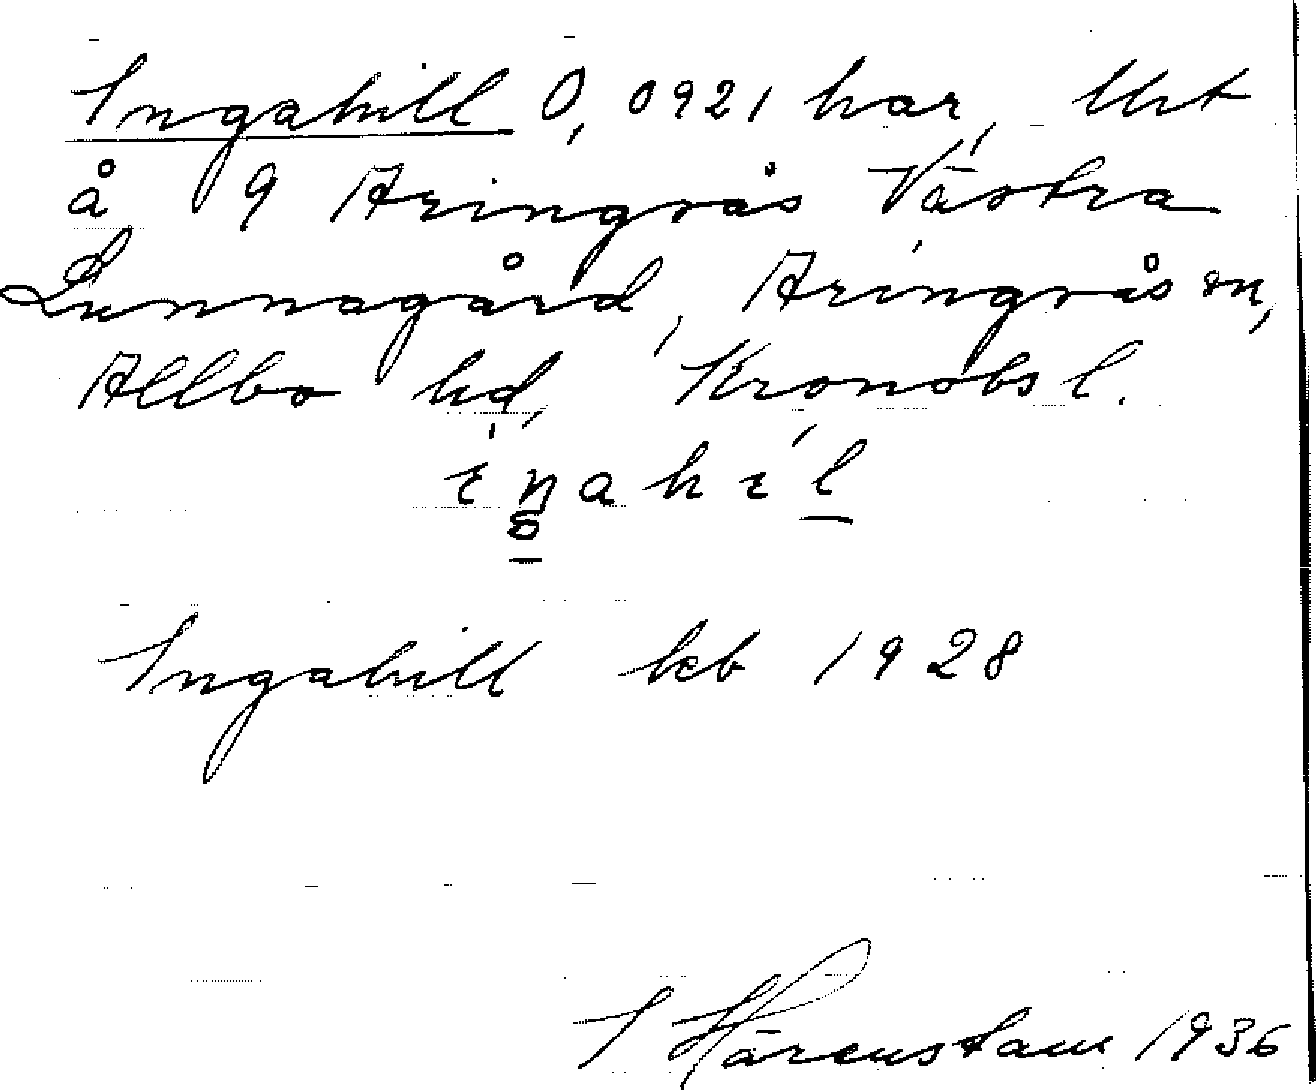 Ingahill 0,0921 har, Utst
å 9 Aringsås Västra
Lunnagård, Aringsås sn,
Allbo hd, Kronobs l.
ɩŋahɩl
Ingahill kb 1928
I Härenstam 1936